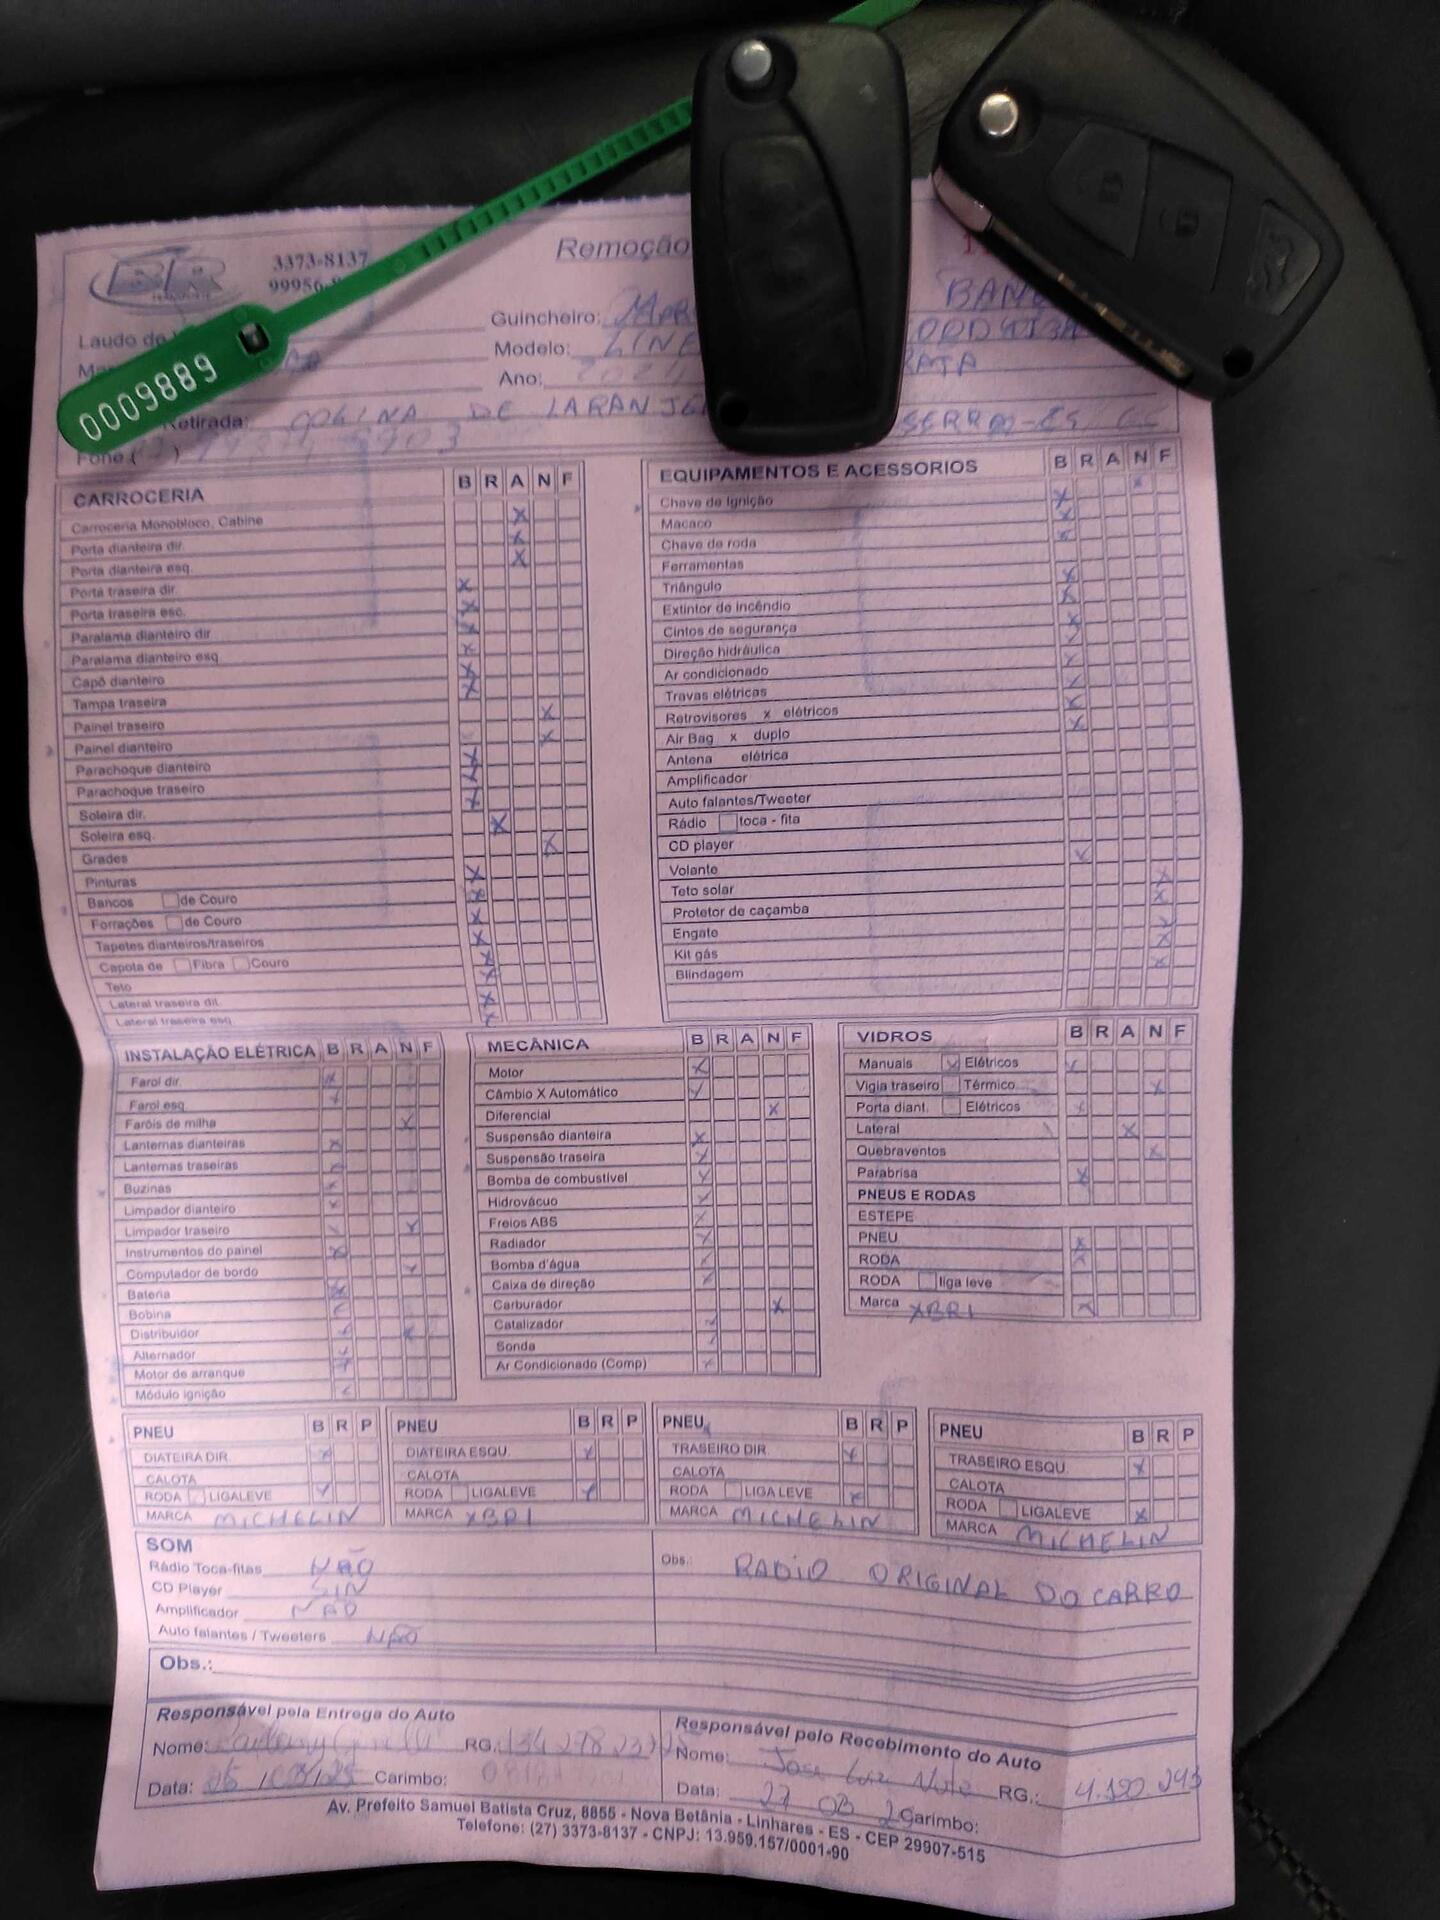 BR
TRANSPORTE
3373-8137
99956-
Remoção
Laudo de
Guincheiro:
BAN
Modelo: LINE
Ano: 2024
PRATA
Retirada: COLINA DE LARANJE SERRA-ES
Fone ( )
0009889
CARROCERIA B R A N F
Carroceria Monobloco, Cabine
Porta dianteira dir.
Porta dianteira esq.
Porta traseira dir.
Porta traseira esc.
Paralama dianteiro dir
Paralama dianteiro esq
Capô dianteiro
Tampa traseira
Painel traseiro
Painel dianteiro
Parachoque dianteiro
Parachoque traseiro
Soleira dir.
Soleira esq.
Grades
Pinturas
Bancos de Couro
Forrações de Couro
Tapetes dianteiros/traseiros
Capota de Fibra Couro
Teto
Lateral traseira dit.
Lateral traseira esq.
EQUIPAMENTOS E ACESSORIOS B R A N F
Chave de Ignição
Macaco
Chave de roda
Ferramentas
Triângulo
Extintor de incêndio
Cintos de segurança
Direção hidráulica
Ar condicionado
Travas elétricas
Retrovisores x elétricos
Air Bag x duplo
Antena elétrica
Amplificador
Auto falantes/Tweeter
Rádio toca - fita
CD player
Volante
Teto solar
Protetor de caçamba
Engate
Kit gás
Blindagem
INSTALAÇÃO ELÉTRICA B R A N F
Farol dir.
Farol esq.
Faróis de milha
Lanternas dianteiras
Lanternas traseiras
Buzinas
Limpador dianteiro
Limpador traseiro
Instrumentos do painel
Computador de bordo
Bateria
Bobina
Distribuidor
Alternador
Motor de arranque
Módulo ignição
MECÂNICA B R A N F
Motor
Câmbio X Automático
Diferencial
Suspensão dianteira
Suspensão traseira
Bomba de combustível
Hidrovácuo
Freios ABS
Radiador
Bomba d'água
Caixa de direção
Carburador
Catalizador
Sonda
Ar Condicionado (Comp)
VIDROS B R A N F
Manuais Elétricos
Vigia traseiro Térmico
Porta diant. Elétricos
Lateral
Quebraventos
Parabrisa
PNEUS E RODAS
ESTEPE
PNEU
RODA
RODA liga leve
Marca XBRI
PNEU B R P
DIATEIRA DIR.
CALOTA
RODA LIGALEVE
MARCA MICHELIN
PNEU B R P
DIATEIRA ESQU.
CALOTA
RODA LIGALEVE
MARCA XBRI
PNEU B R P
TRASEIRO DIR.
CALOTA
RODA LIGALEVE
MARCA MICHELIN
PNEU B R P
TRASEIRO ESQU.
CALOTA
RODA LIGALEVE
MARCA MICHELIN
SOM
Rádio Toca-fitas NÃO
CD Player SIN
Amplificador NÃO
Auto falantes / Tweeters NÃO
Obs.: RADIO ORIGINAL DO CARRO
Obs.:
Responsável pela Entrega do Auto
Nome: RG.
Data: Carimbo:
Responsável pelo Recebimento do Auto
Nome: Jose Luiz RG.: 4.120.293
Data: 27 08 Carimbo:
Av. Prefeito Samuel Batista Cruz, 8855 - Nova Betânia - Linhares - ES - CEP 29907-515
Telefone: (27) 3373-8137 - CNPJ: 13.959.157/0001-90